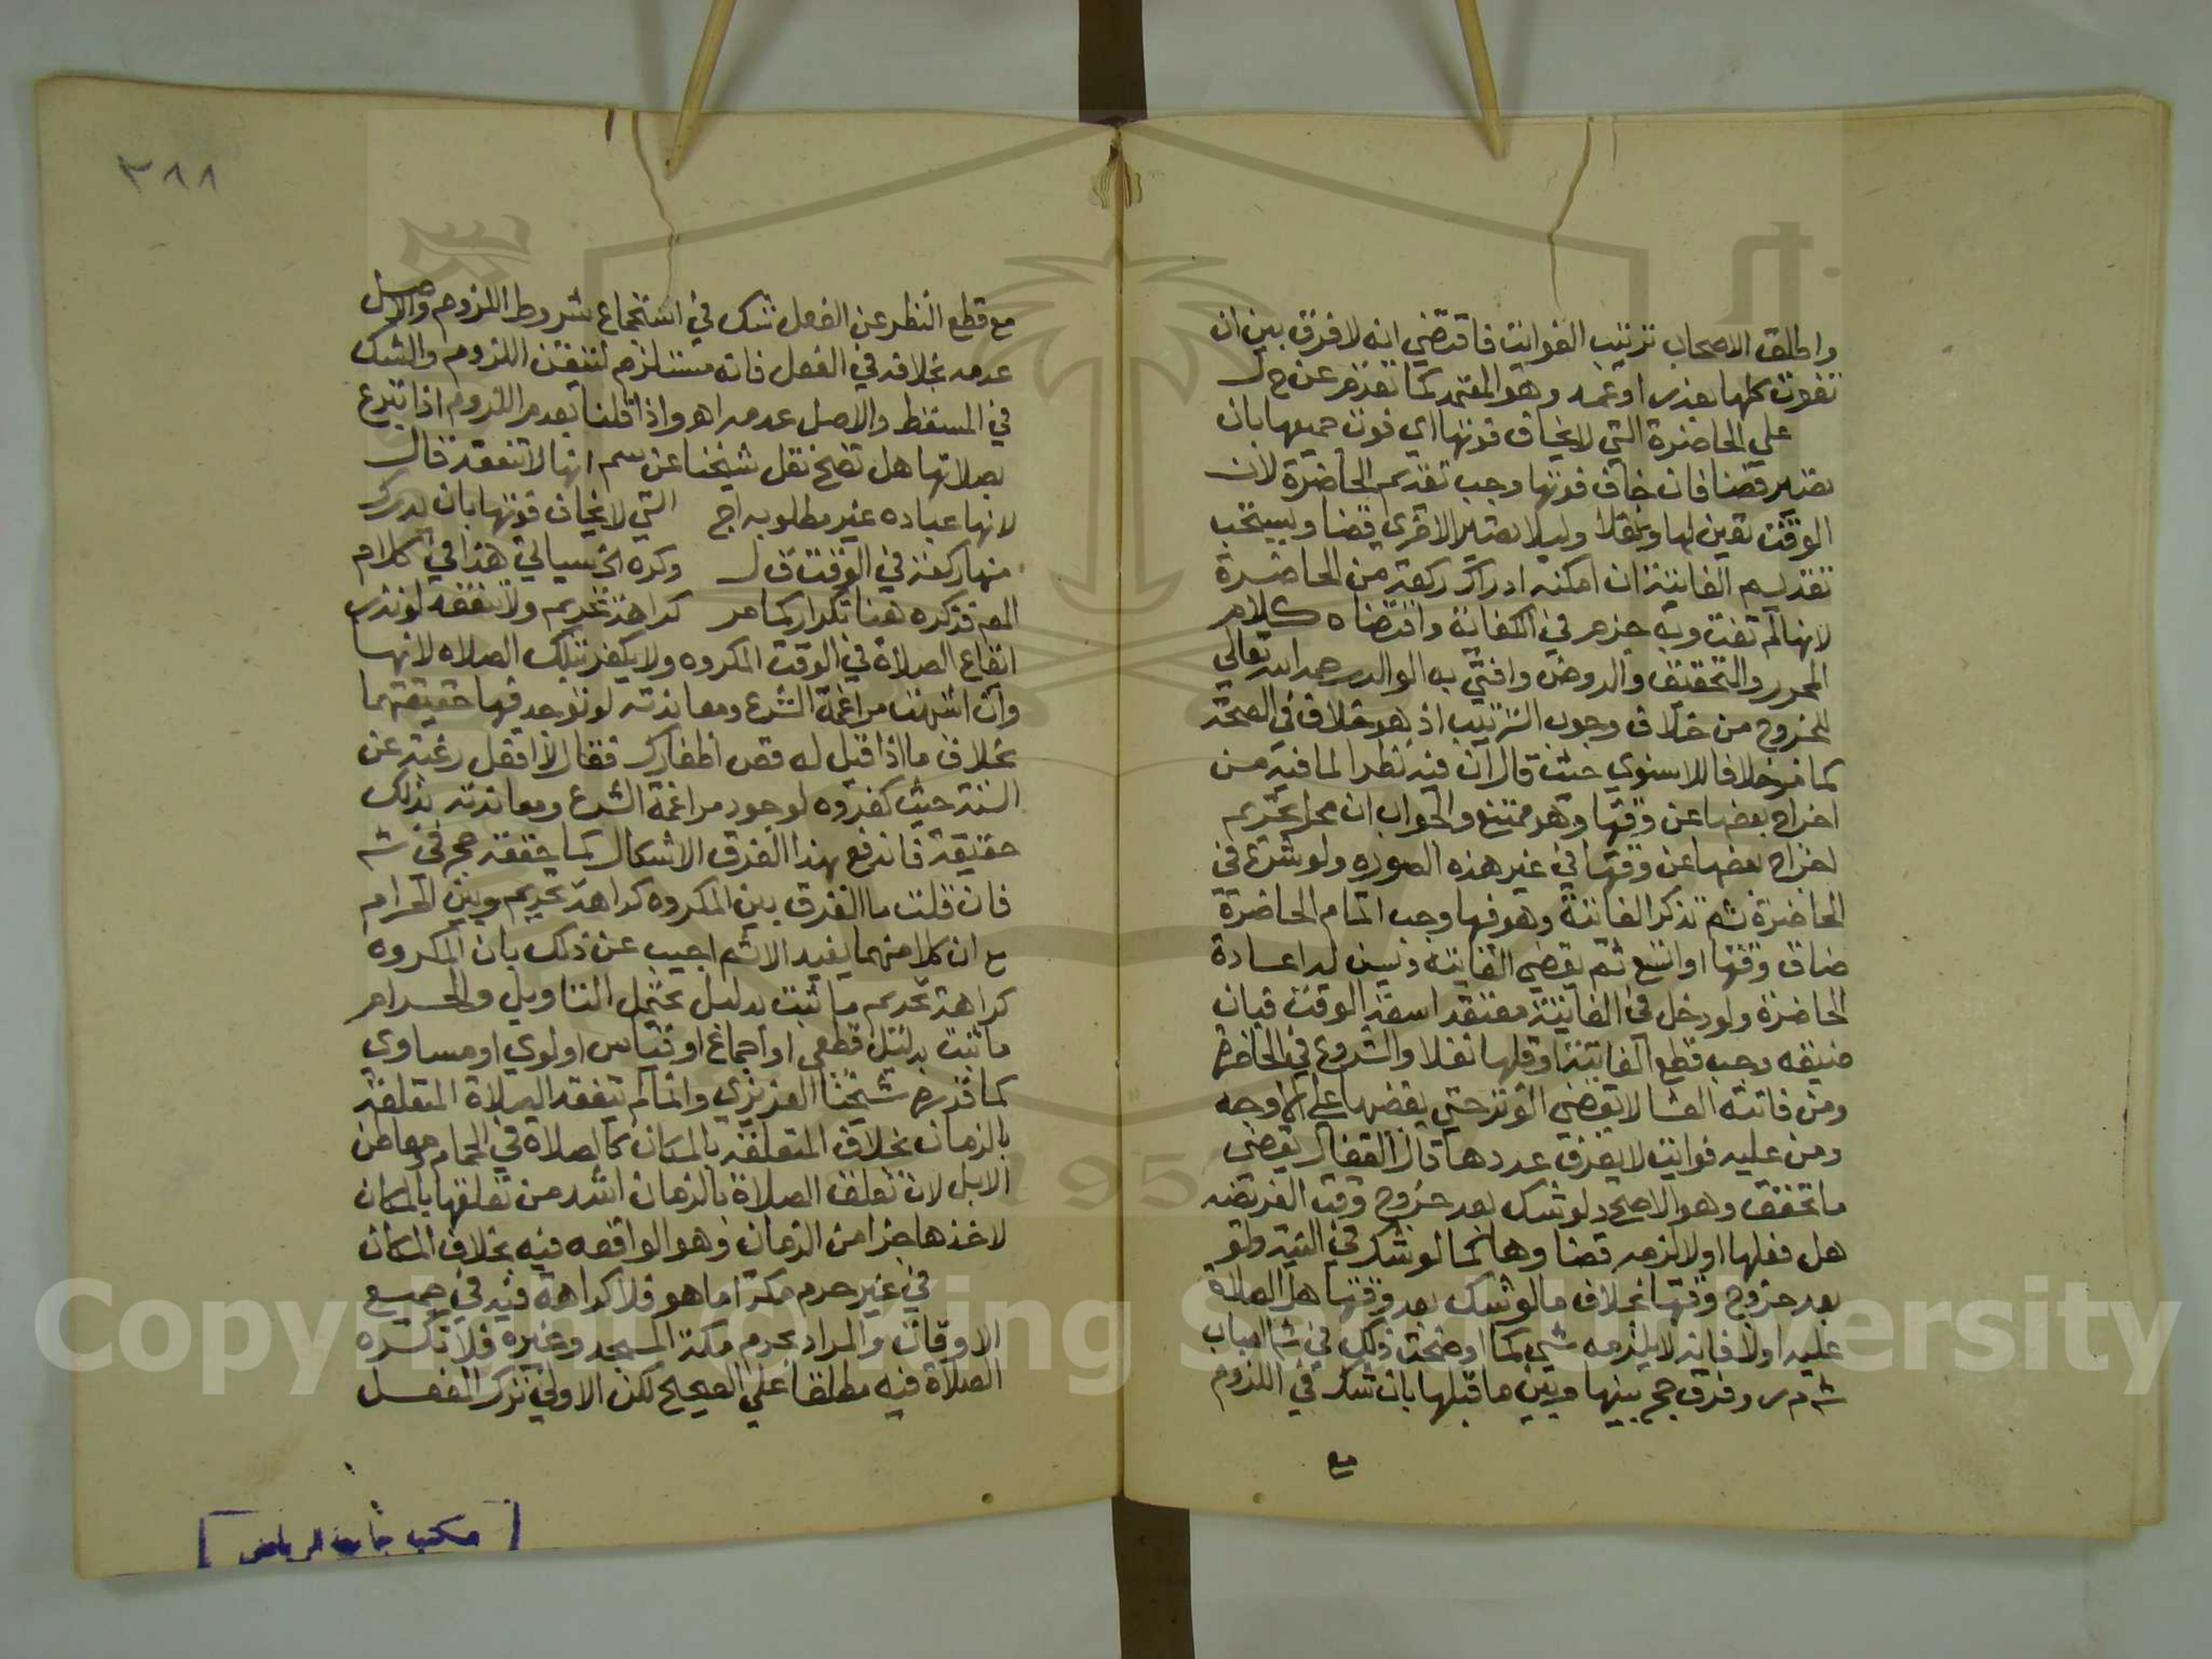 واطلق الاصحاب ترتيب الفوايت فاقتضي انه لا فرق بين ان
تفوت كلها بعذر او عمد وهو المعتمد كما تقدم عن ح ل
علي الحاضرة التي لا يخاف فوتها اي فوت جميعها بان
تصير قضا فان خاف فوتها وجب تقديم الحاضرة لان
الوقت تعين لها وليلا تصير الاخري قضا ويستحب
تقديم الفايتة ان امكنه ادراك ركعة من الحاضرة
لانها لم تفت وبه جزم في الكفاية واقتضاه كلام
المحرر والتحقيق والروض وافتي به الوالد رحمه الله تعالي
للخروج من خلاف وجوب الترتيب اذ هو خلاف في الصحة
كما مر خلافا للاسنوي حيث قال ان فيه نظرا لما فيه من
اخراج بعضها عن وقتها وهو ممتنع والجواب ان محل تحريم
اخراج بعضها عن وقتها في غير هذه الصوره ولو شرع في
الحاضرة ثم تذكر الفايتة وهو فيها وجب اتمام الحاضرة
ضاق وقتها او اتسع ثم يقضي الفايتة ويسن له اعادة
الحاضرة ولو دخل في الفايتة معتقدا سعة الوقت فبان
ضيقه وجب قطع الفايتة او قلبها نفلا والشروع في الحاضرة
ومن فاتته العشا لا يقضي الوتر حتي يقضيها علي الاوجه
ومن عليه فوايت لا يعرف عددها قال القفال يقضي
ما تحقق وهو الاصح ولو شك بعد خروج وقت الفريضه
هل فعلها اولا لزمه قضاوها كما لو شك في النية ولو
بعد خروج وقتها بخلاف ما لو شك بعد وقتها هل الصلاة
عليه اولا فانه لا يلزمه شي كما اوضحت ذلك في ش العباب
ش م ر وفرق حج بينها وبين ما قبلها بان شك في اللزوم
مع
٣٨٨
مع قطع النظر عن الفعل شك في استجماع شروط اللزوم والاصل
عدمه بخلافه في الفعل فانه مستلزم لتيقن اللزوم والشك
في المسقط والاصل عدمه اهو واذا قلنا بعدم اللزوم اذا تبرع
بصلاتها هل تصح نقل شيخنا عن سم انها لا تنعقد قال
لانها عباده غير مطلوبه اج التي لا يخاف فوتها بان يدرك
منها ركعة في الوقت ق ل وكره الخ سيالي هذا في كلام
المص فذكره هنا تكرار كما مر كراهة تحريم ولا تنعقد لو نذر
ايقاع الصلاة في الوقت المكروه ولا يكفر بتلك الصلاه لانها
وان اشبهت مراغمة الشرع ومعاندته لو توجد فيها حقيقتهما
بخلاف ما اذا قيل له قص اظفارك فقال لا افعل رغبة عن
السنة حيث كفروه لوجود مراغمة الشرع ومعاندته بذلك
حقيقة فاندفع بهذا الفرق الاشكال كما حققه حج في ش
فان قلت ما الفرق بين المكروه كراهة تحريم وبين الحرام
مع ان كلا منهما يفيد الاثم اجيب عن ذلك بان المكروه
كراهة تحريم ما ثبت بدليل يحتمل التاويل والحرام
ما ثبت بدليل قطعي او اجماع او قياس اولوي او مساوي
كما قرره شيخنا العزيزي وانما لم تنعقد الصلاة المتعلقة
بالزمان بخلاف المتعلقة بالمكان كالصلاة في الحمام ومعاطن
الابل لان تعلق الصلاة بالزمان اشد من تعلقها بالمكان
لاخذها جزا من الزمان وهو الواقعه فيه بخلاف المكان
في غير حرم مكة اما هو فلا كراهة فيه في جميع
الاوقات والمراد بحرم مكة المسجد وغيره فلا تكره
الصلاة فيه مطلقا علي الصحيح لكن الاولي ترك الفعل
مكتبة جامعة الرياض
Copyright © King Saud University
1957